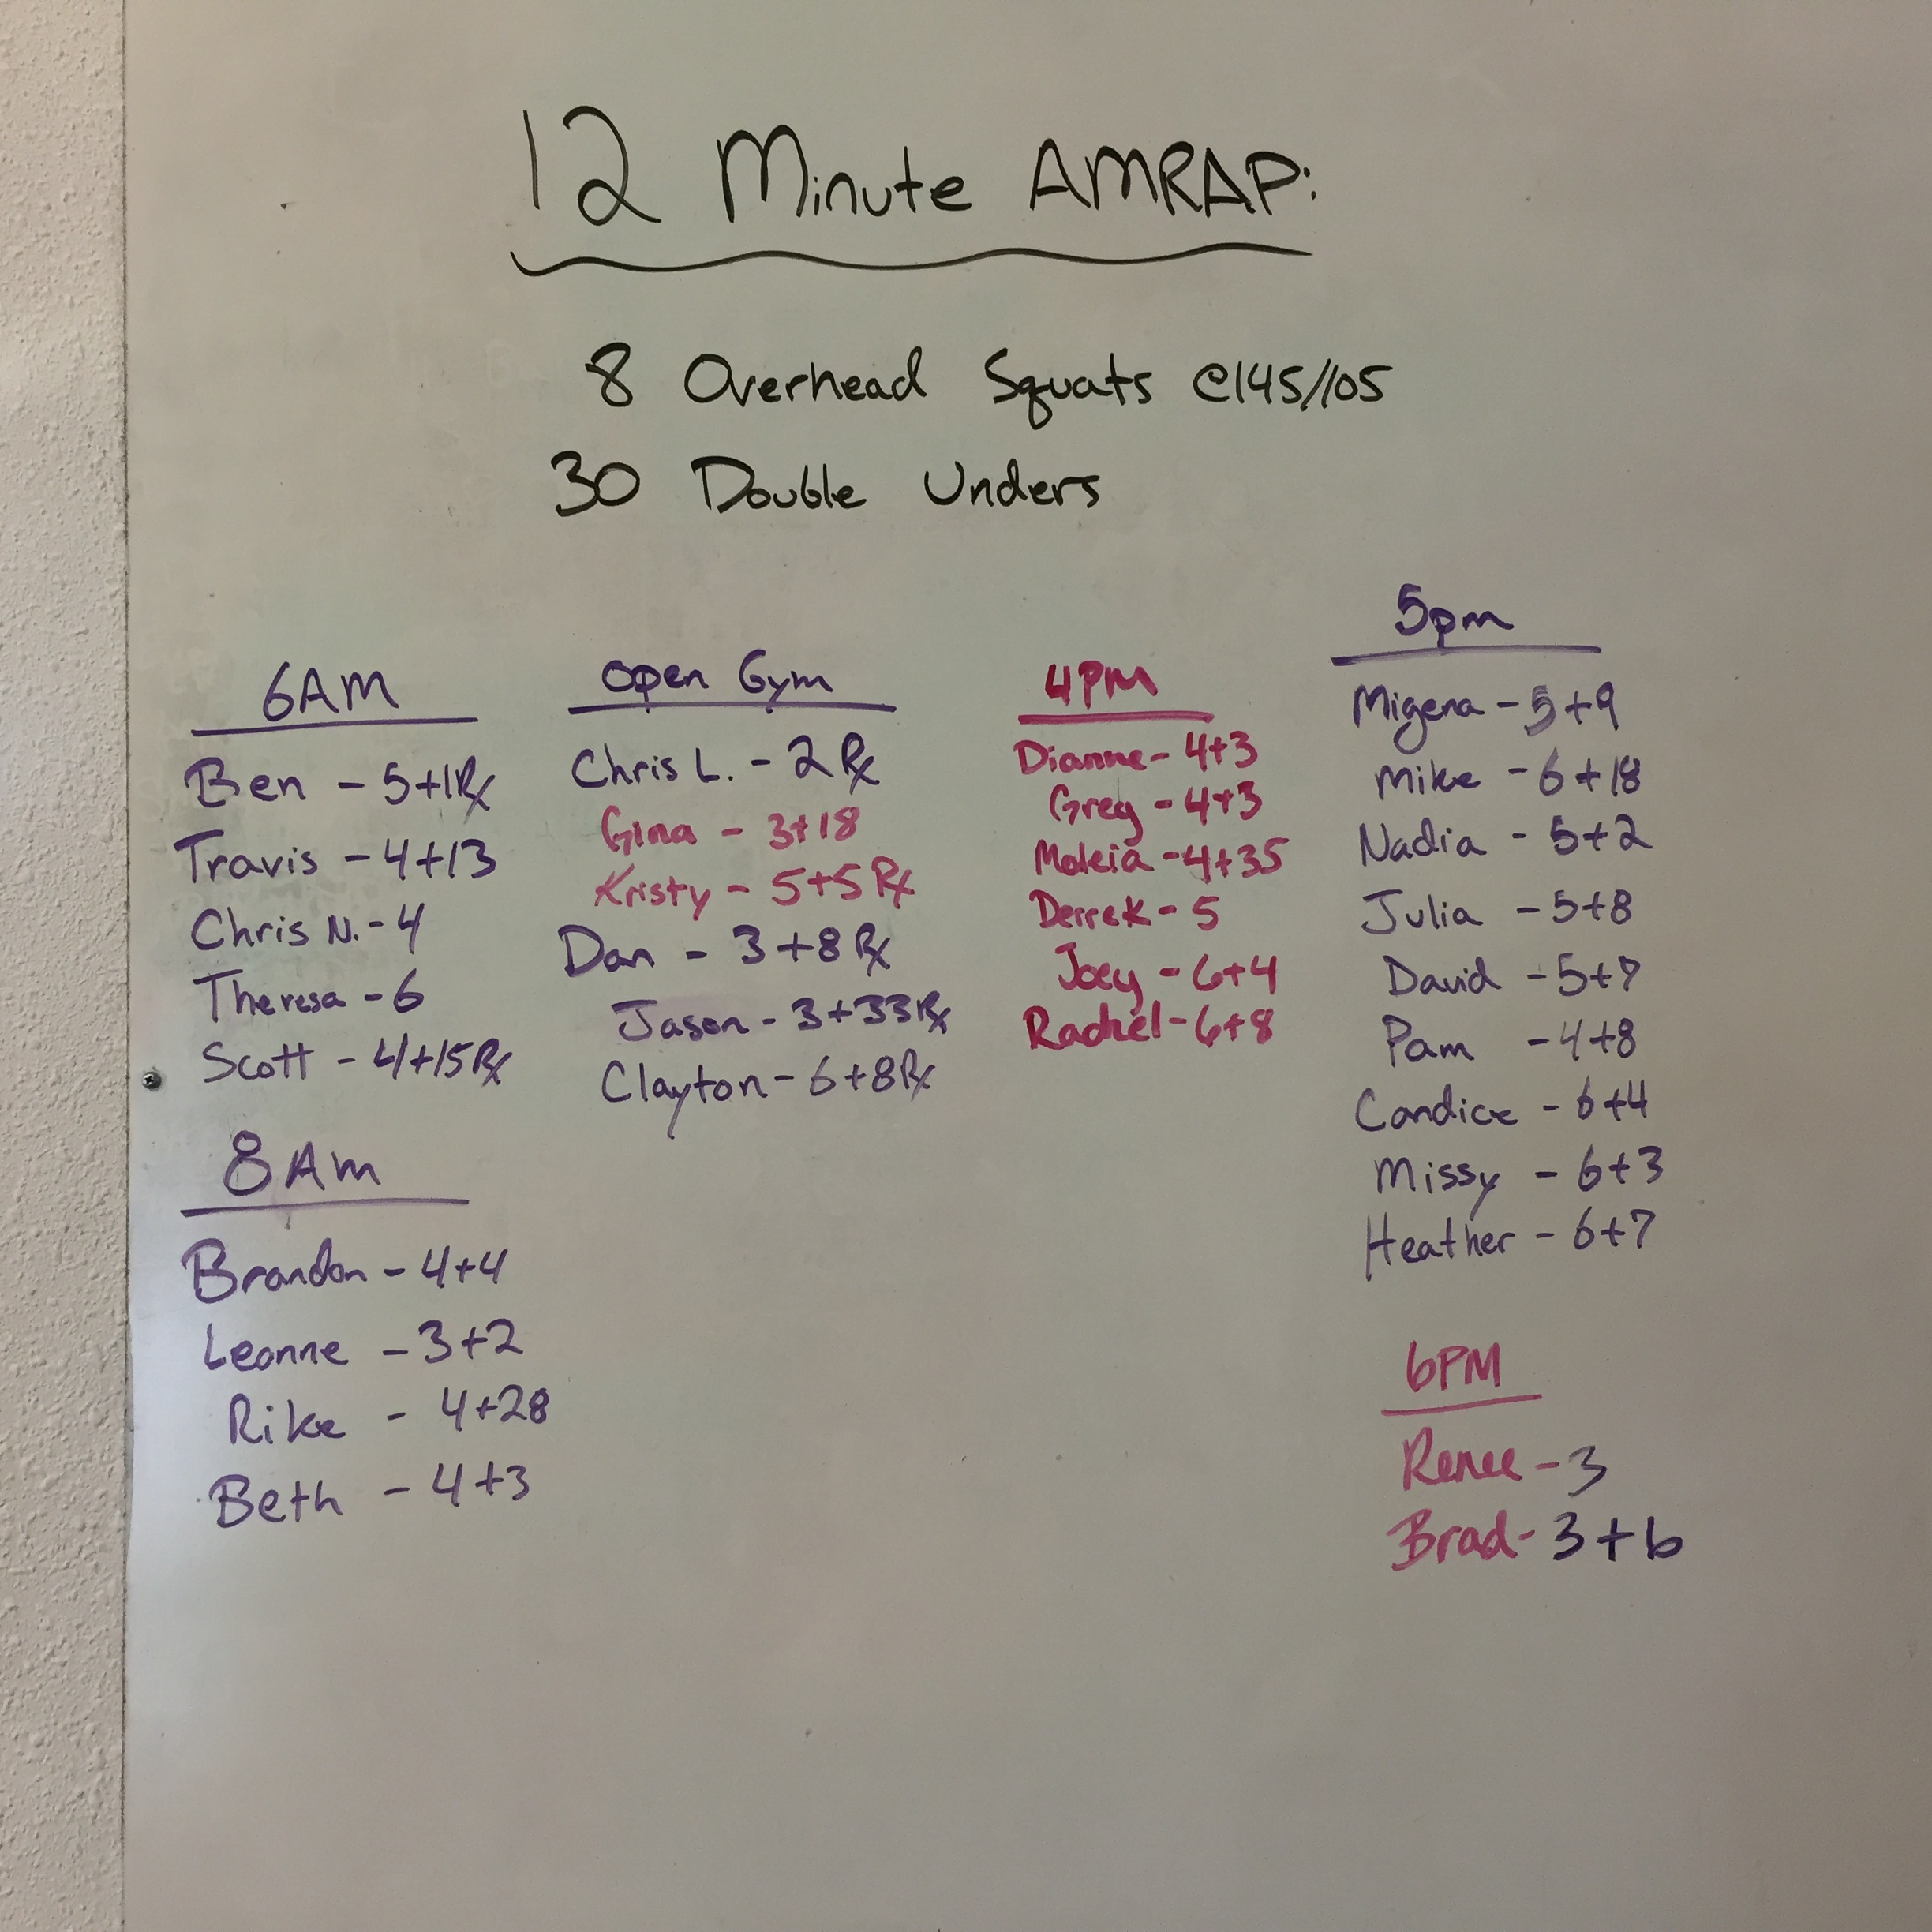 12 Minute AMRAP:
8 Overhead Squats @145/105
30 Double Unders
6AM
Ben - 5+1Rx
Travis - 4+13
Chris N. - 4
Theresa - 6
Scott - 4+15Rx
8Am
Brandon - 4+4
Leanne - 3+2
Rike - 4+28
Beth - 4+3
Open Gym
Chris L. - 2 Rx
Gina - 3+18
Kristy - 5+5 Rx
Dan - 3+8 Rx
Jason - 3+33Rx
Clayton - 6+8Rx
4PM
Dianne - 4+3
Greg - 4+3
Maleia - 4+35
Derrek - 5
Joey - 6+4
Rachel - 6+8
5pm
Migena - 5+9
Mike - 6+18
Nadia - 5+2
Julia - 5+8
David - 5+7
Pam - 4+8
Candice - 6+4
Missy - 6+3
Heather - 6+7
6PM
Renee - 3
Brad - 3+6